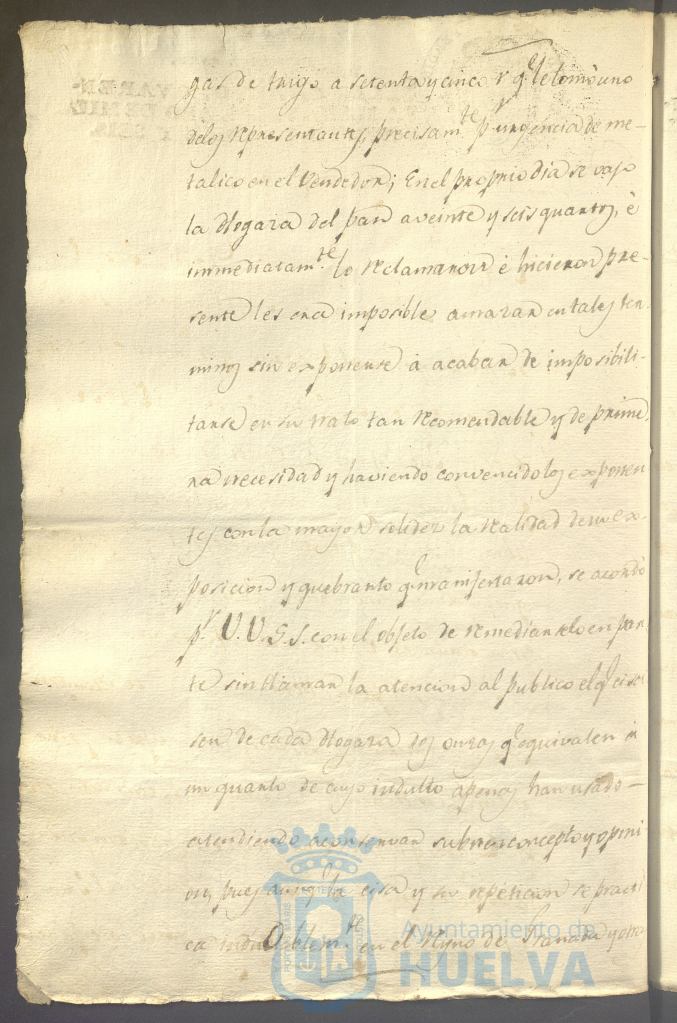 gas de trigo a setenta y cinco r.s q.e le tomò uno
delos representantes, precisam.te p.r urgencia de me-
talico en el Vendedor; En el proprio dia se vajo
la Hogaza del pan a veinte y seis quartos, è
immediatam.te lo reclamaron è hicieron pre-
sente les era imposible amazar en tales ter-
minos sin exponerse à acabar de imposibili-
tarse en su trato tan recomendable y de prime-
ra necesidad y haviendo convencido los exponen
tes con la mayor solidez la realidad de su ex-
posicion y quebranto q.e manifestaron, se acordò
p.r V.V.S.S. con el objeto de remediarselo en par-
te sin llamar la atencion al publico el q.e cisa
sen de cada Hogaza dos onzas q.e equivalen à
un quarto de cuyo indulto apenas han usado
atendiendo a conservar su buen concepto y opini
on, pues aunq.e la cisa y su repeticion se practi
ca indudablem.te en el Reyno de Granada y otro
Ayuntamiento de
HUELVA